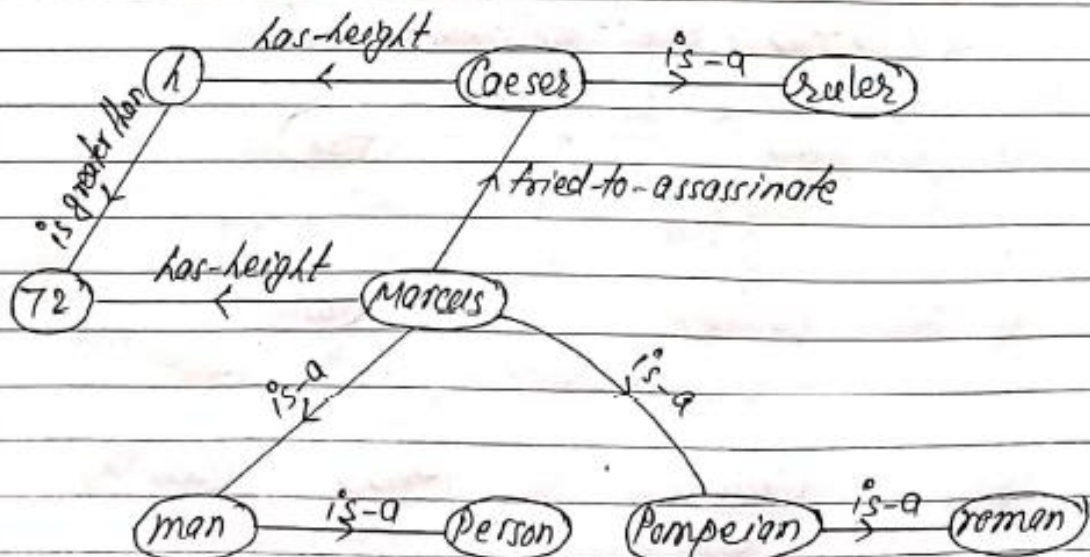 has-height
h
Caeser
is-a
ruler
is greater than
tried-to-assassinate
72
has-height
Marcus
is-a
is-a
man
is-a
Person
Pompeian
is-a
roman